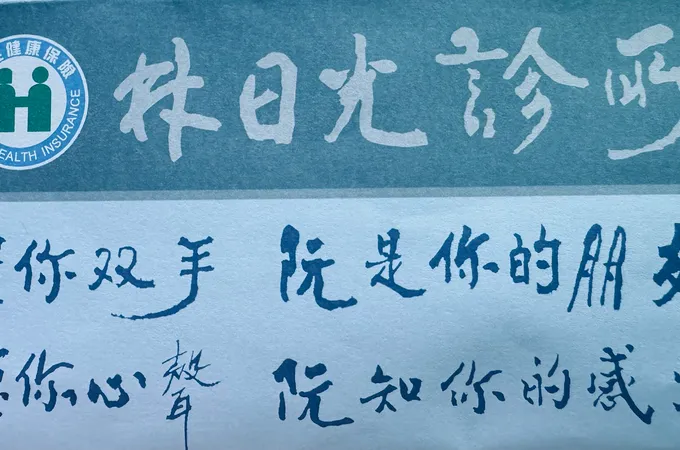 健康保險
HEALTH INSURANCE
林日光診所
你双手 阮是你的朋友
你心聲 阮知你的感